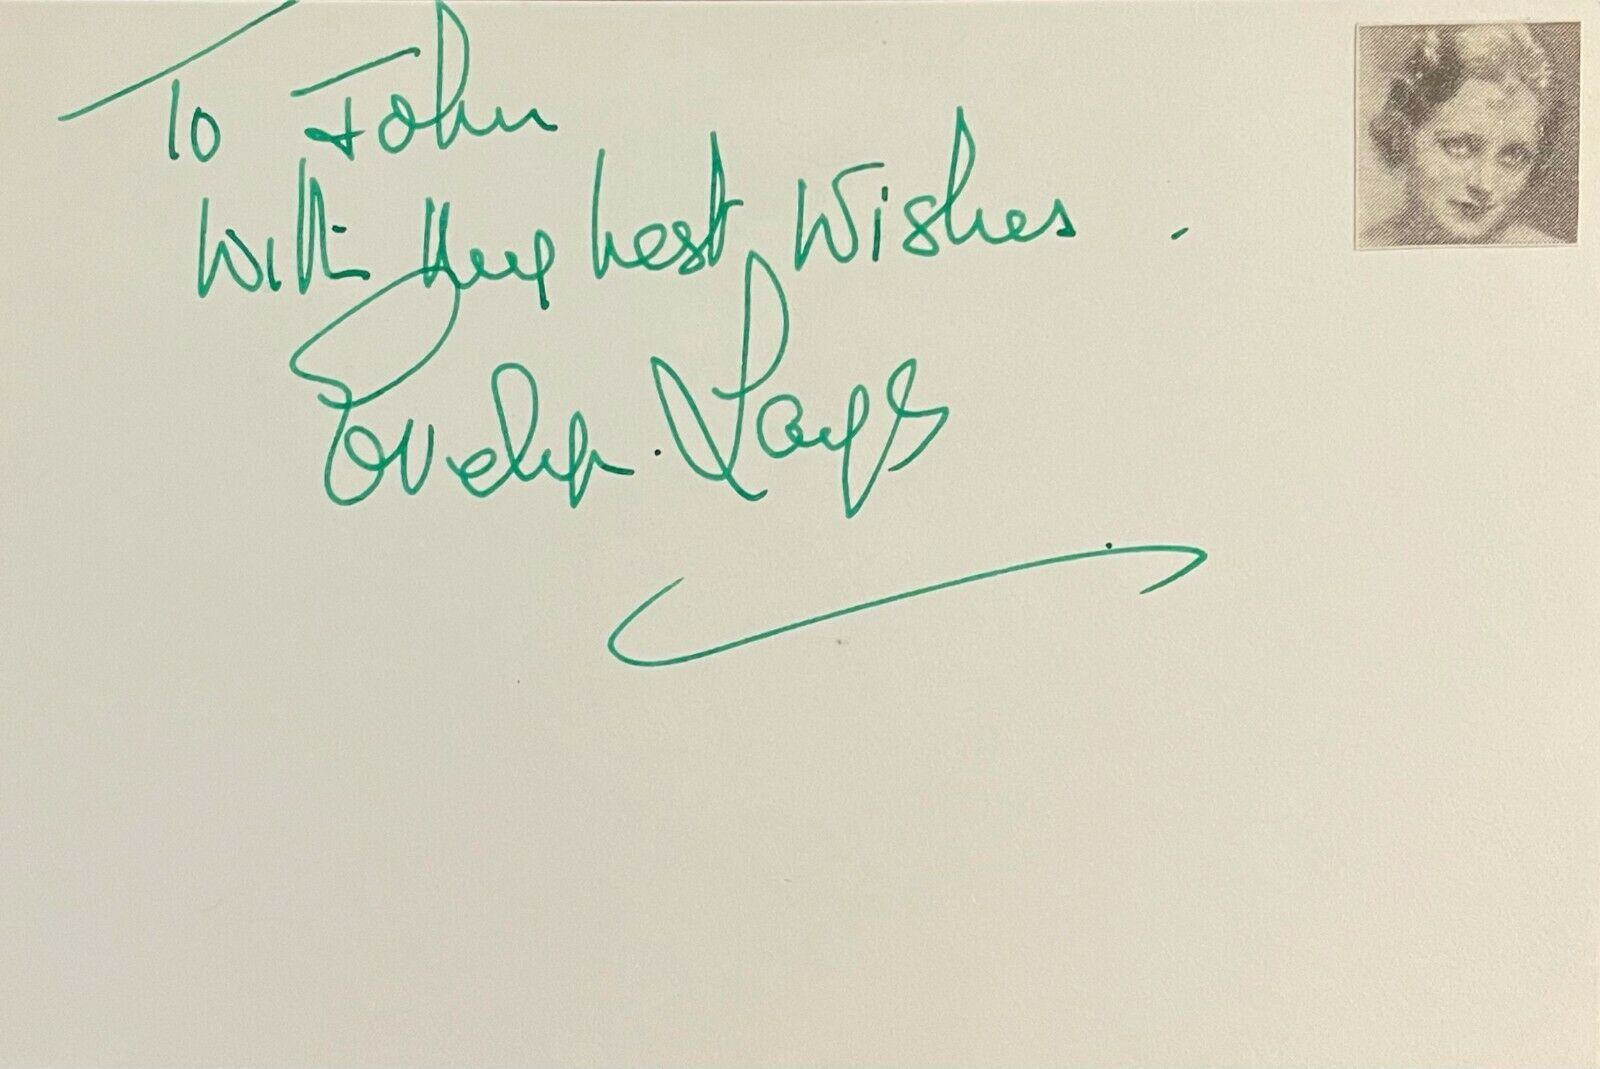 To John
With my best Wishes.
Evelyn. Laye